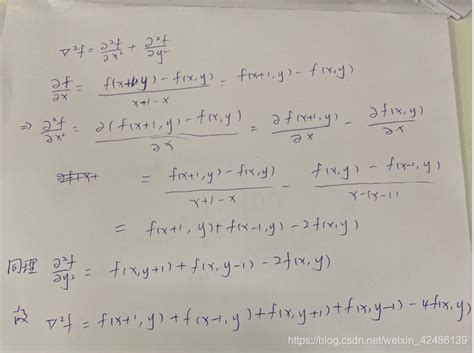 ∇²f = ∂²f/∂x² + ∂²f/∂y²
∂f/∂x = (f(x+1,y) - f(x,y))/(x+1-x) = f(x+1,y) - f(x,y)
⇒ ∂²f/∂x² = ∂(f(x+1,y) - f(x,y))/∂x = ∂f(x+1,y)/∂x - ∂f(x,y)/∂x
= (f(x+1,y) - f(x,y))/(x+1-x) - (f(x,y) - f(x-1,y))/(x-(x-1))
= f(x+1,y) + f(x-1,y) - 2f(x,y)
同理 ∂²f/∂y² = f(x,y+1) + f(x,y-1) - 2f(x,y)
故 ∇²f = f(x+1,y) + f(x-1,y) + f(x,y+1) + f(x,y-1) - 4f(x,y)
https://blog.csdn.net/weixin_42486139